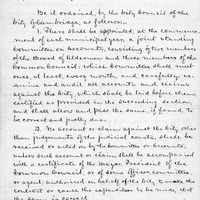 Be it ordained, by the City Council of the
City of Cambridge, as follows:
1. There shall be appointed, at the commence-
ment of each municipal year, a joint standing
Committee on accounts, consisting of two members
of the Board of Aldermen and three members of the
Common Council; which Committee shall meet
once, at least, every month, and carefully
examine and audit all accounts and claims
against the City, which shall be laid before them,
certified as provided in the succeeding section,
and shall allow and pass the same, if found to
be correct and justly due.
2. No account or claim against the City, other
than judgements of the judicial courts, shall be
received or acted on by the Committee on accounts,
unless such account or claim shall be accompanied
with a certificate of the Mayor, President of the
Common Council, or of some officer, committee,
or agent, authorized on behalf of the City, to make the
contract or cause the expenditure to be made, that
the same is correct